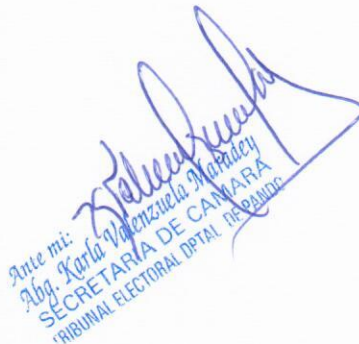 Ante mi:
Abg. Karla Valenzuela Maradey
SECRETARIA DE CAMARA
TRIBUNAL ELECTORAL DPTAL. DE PANDO